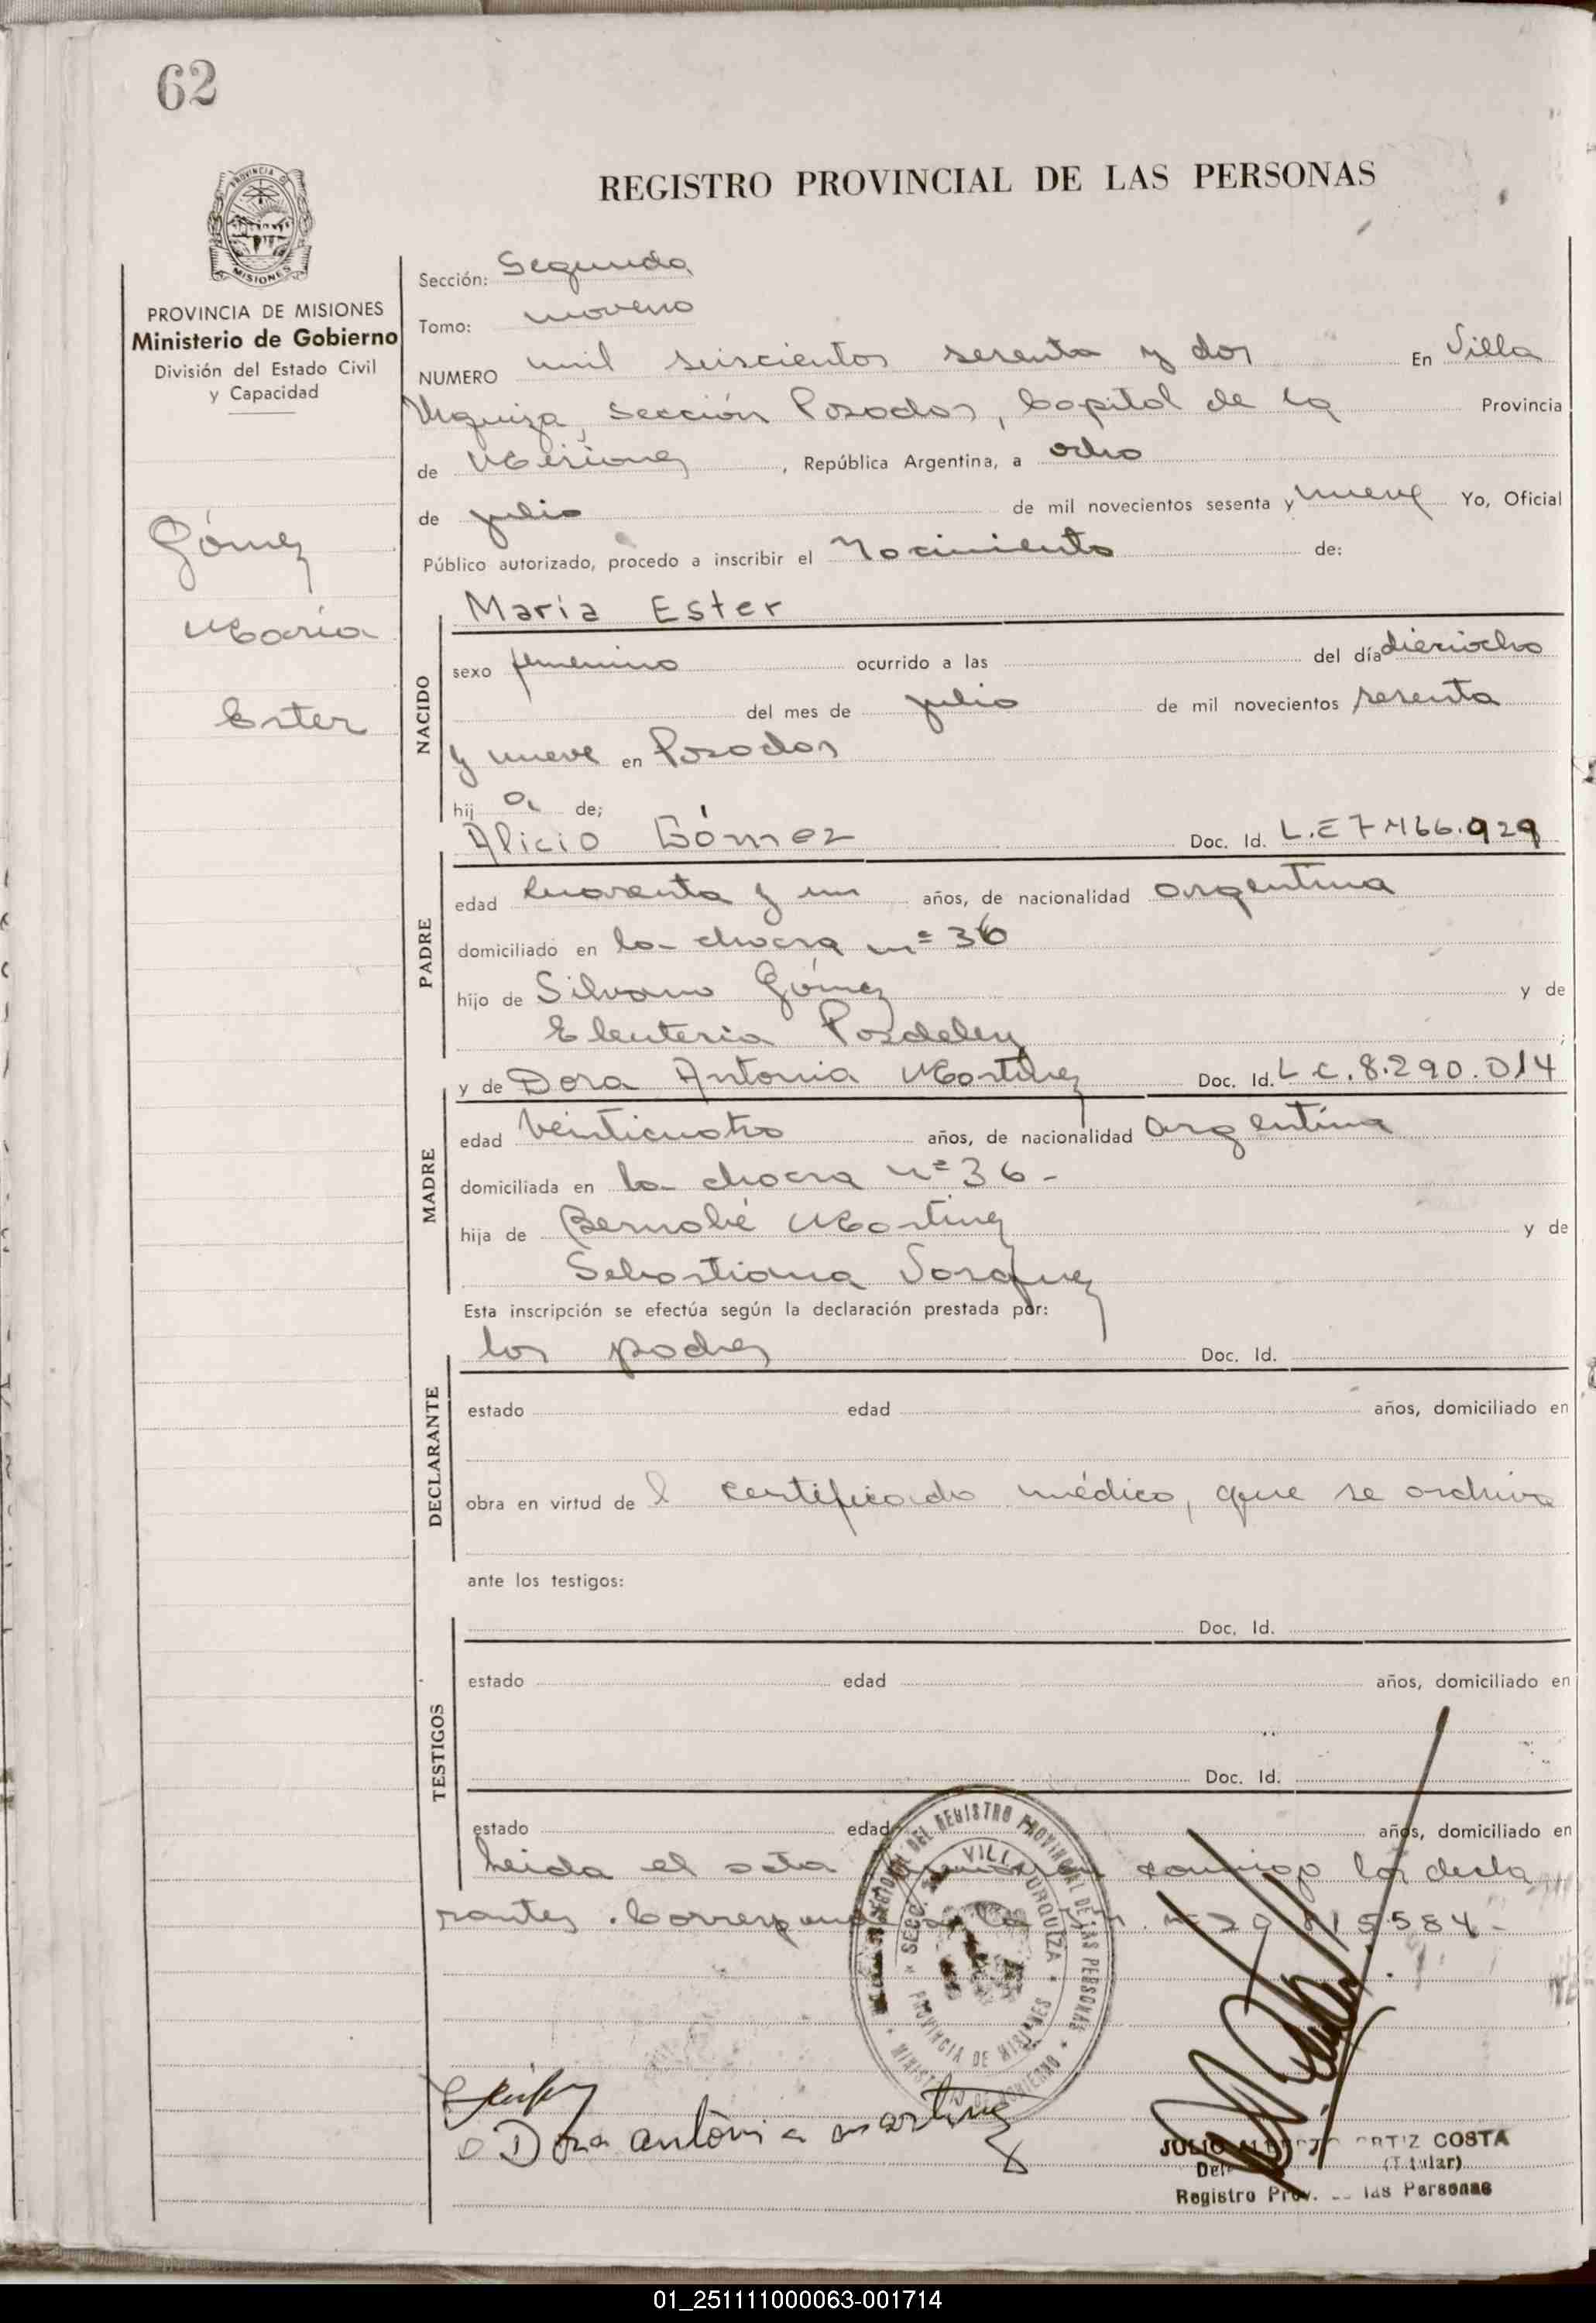 62
REGISTRO PROVINCIAL DE LAS PERSONAS
PROVINCIA DE MISIONES
Ministerio de Gobierno
División del Estado Civil
y Capacidad
Gómez
María
Ester
Sección: Segunda
Tomo: noveno
NUMERO mil seiscientos sesenta y dos En Villa
Urquiza, Sección Posadas, Capital de la Provincia
de Misiones, República Argentina, a ocho
de julio de mil novecientos sesenta y nueve Yo, Oficial
Público autorizado, procedo a inscribir el Nacimiento de:
NACIDO
María Ester
sexo femenino ocurrido a las del día dieciocho
del mes de julio de mil novecientos sesenta
y nueve en Posadas
hij a de;
PADRE
Alicio Gómez Doc. Id. L.E 7.466.929
edad cuarenta y un años, de nacionalidad argentina
domiciliado en la chacra nº 36
hijo de Silvano Gómez y de
Eleuteria
MADRE
y de Dora Antonia Martínez Doc. Id. L C. 8.290.014
edad veinticuatro años, de nacionalidad argentina
domiciliada en la chacra nº 36 -
hija de Bernabé Martínez y de
Sebastiana Vasquez
Esta inscripción se efectúa según la declaración prestada por:
DECLARANTE
los padres Doc. Id.
estado edad años, domiciliado en
obra en virtud de l certificado médico, que se archiva
ante los testigos:
TESTIGOS
Doc. Id.
estado edad años, domiciliado en
Doc. Id.
estado edad años, domiciliado en
Leida el acta conmigo los decla
rantes. 5584-
DEL REGISTRO PROVINCIAL DE LAS PERSONAS
SECC. VILLA URQUIZA
PROVINCIA DE MISIONES
Dora antonia martinez
JULIO ALBERTO ORTIZ COSTA
(Titular)
Registro Prov. de las Personas
01_251111000063-001714